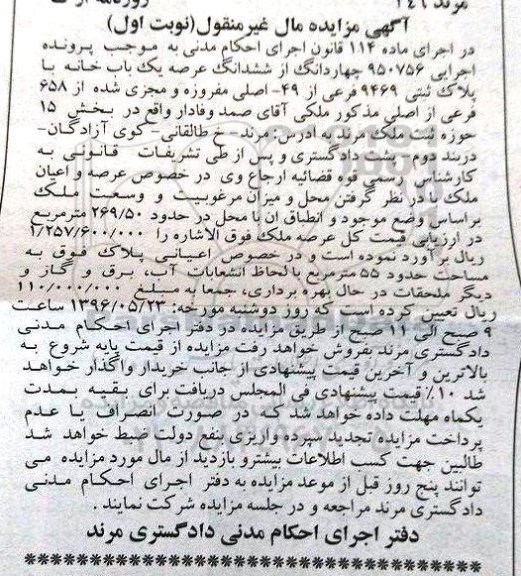 مرند ٢٤٩
آگهی مزایده مال غیرمنقول(نوبت اول)
در اجرای ماده ۱۱۴ قانون اجرای احکام مدنی به موجب پرونده
اجرایی ۹۵۰۷۵۶ چهاردانگ از ششدانگ عرصه یک باب خانه با
پلاک ثبتی ۹۴۶۹ فرعی از ۴۹- اصلی مفروزه و مجزی شده از ۶۵۸
فرعی از اصلی مذکور ملکی آقای صمد وفادار واقع در بخش ۱۵
حوزه ثبت ملک مرند به آدرس: مرند- خ طالقانی- کوی آزادگان-
دربند دوم- پشت دادگستری و پس از طی تشریفات قانونی به
کارشناس رسمی قوه قضائیه ارجاع وی در خصوص عرصه و اعیان
ملک با در نظر گرفتن محل و میزان مرغوبیت و وسعت ملک
براساس وضع موجود و انطباق ان با محل در حدود ۲۶۹/۵۰ مترمربع
در ارزیابی قیمت کل عرصه ملک فوق الاشاره را ۱/۲۵۷/۶۰۰/۰۰۰
ریال برآورد نموده است و در خصوص اعیانی پلاک فوق به
مساحت حدود ۵۵ مترمربع با لحاظ انشعابات آب، برق و گاز و
دیگر ملحقات در حال بهره برداری، جمعا به مبلغ ۱۱۰/۰۰۰/۰۰۰
ریال تعیین گرده است که روز دوشنبه مورخه: ۱۳۹۶/۰۵/۲۳ ساعت
۹ صبح الی ۱۱ صبح از طریق مزایده در دفتر اجرای احکام مدنی
دادگستری مرند بفروش خواهد رفت مزایده از قیمت پایه شروع به
بالاترین و آخرین قیمت پیشنهادی از جانب خریدار واگذار خواهد
شد ۱۰٪ قیمت پیشنهادی فی المجلس دریافت برای بقیه بمدت
یکماه مهلت داده خواهد شد که در صورت انصراف یا عدم
پرداخت مزایده تجدید سپرده واریزی بنفع دولت ضبط خواهد شد
طالبین جهت کسب اطلاعات بیشترو بازدید از مال مورد مزایده می
توانند پنج روز قبل از موعد مزایده به دفتر اجرای احکام مدنی
دادگستری مرند مراجعه و در جلسه مزایده شرکت نمایند .
دفتر اجرای احکام مدنی دادگستری مرند